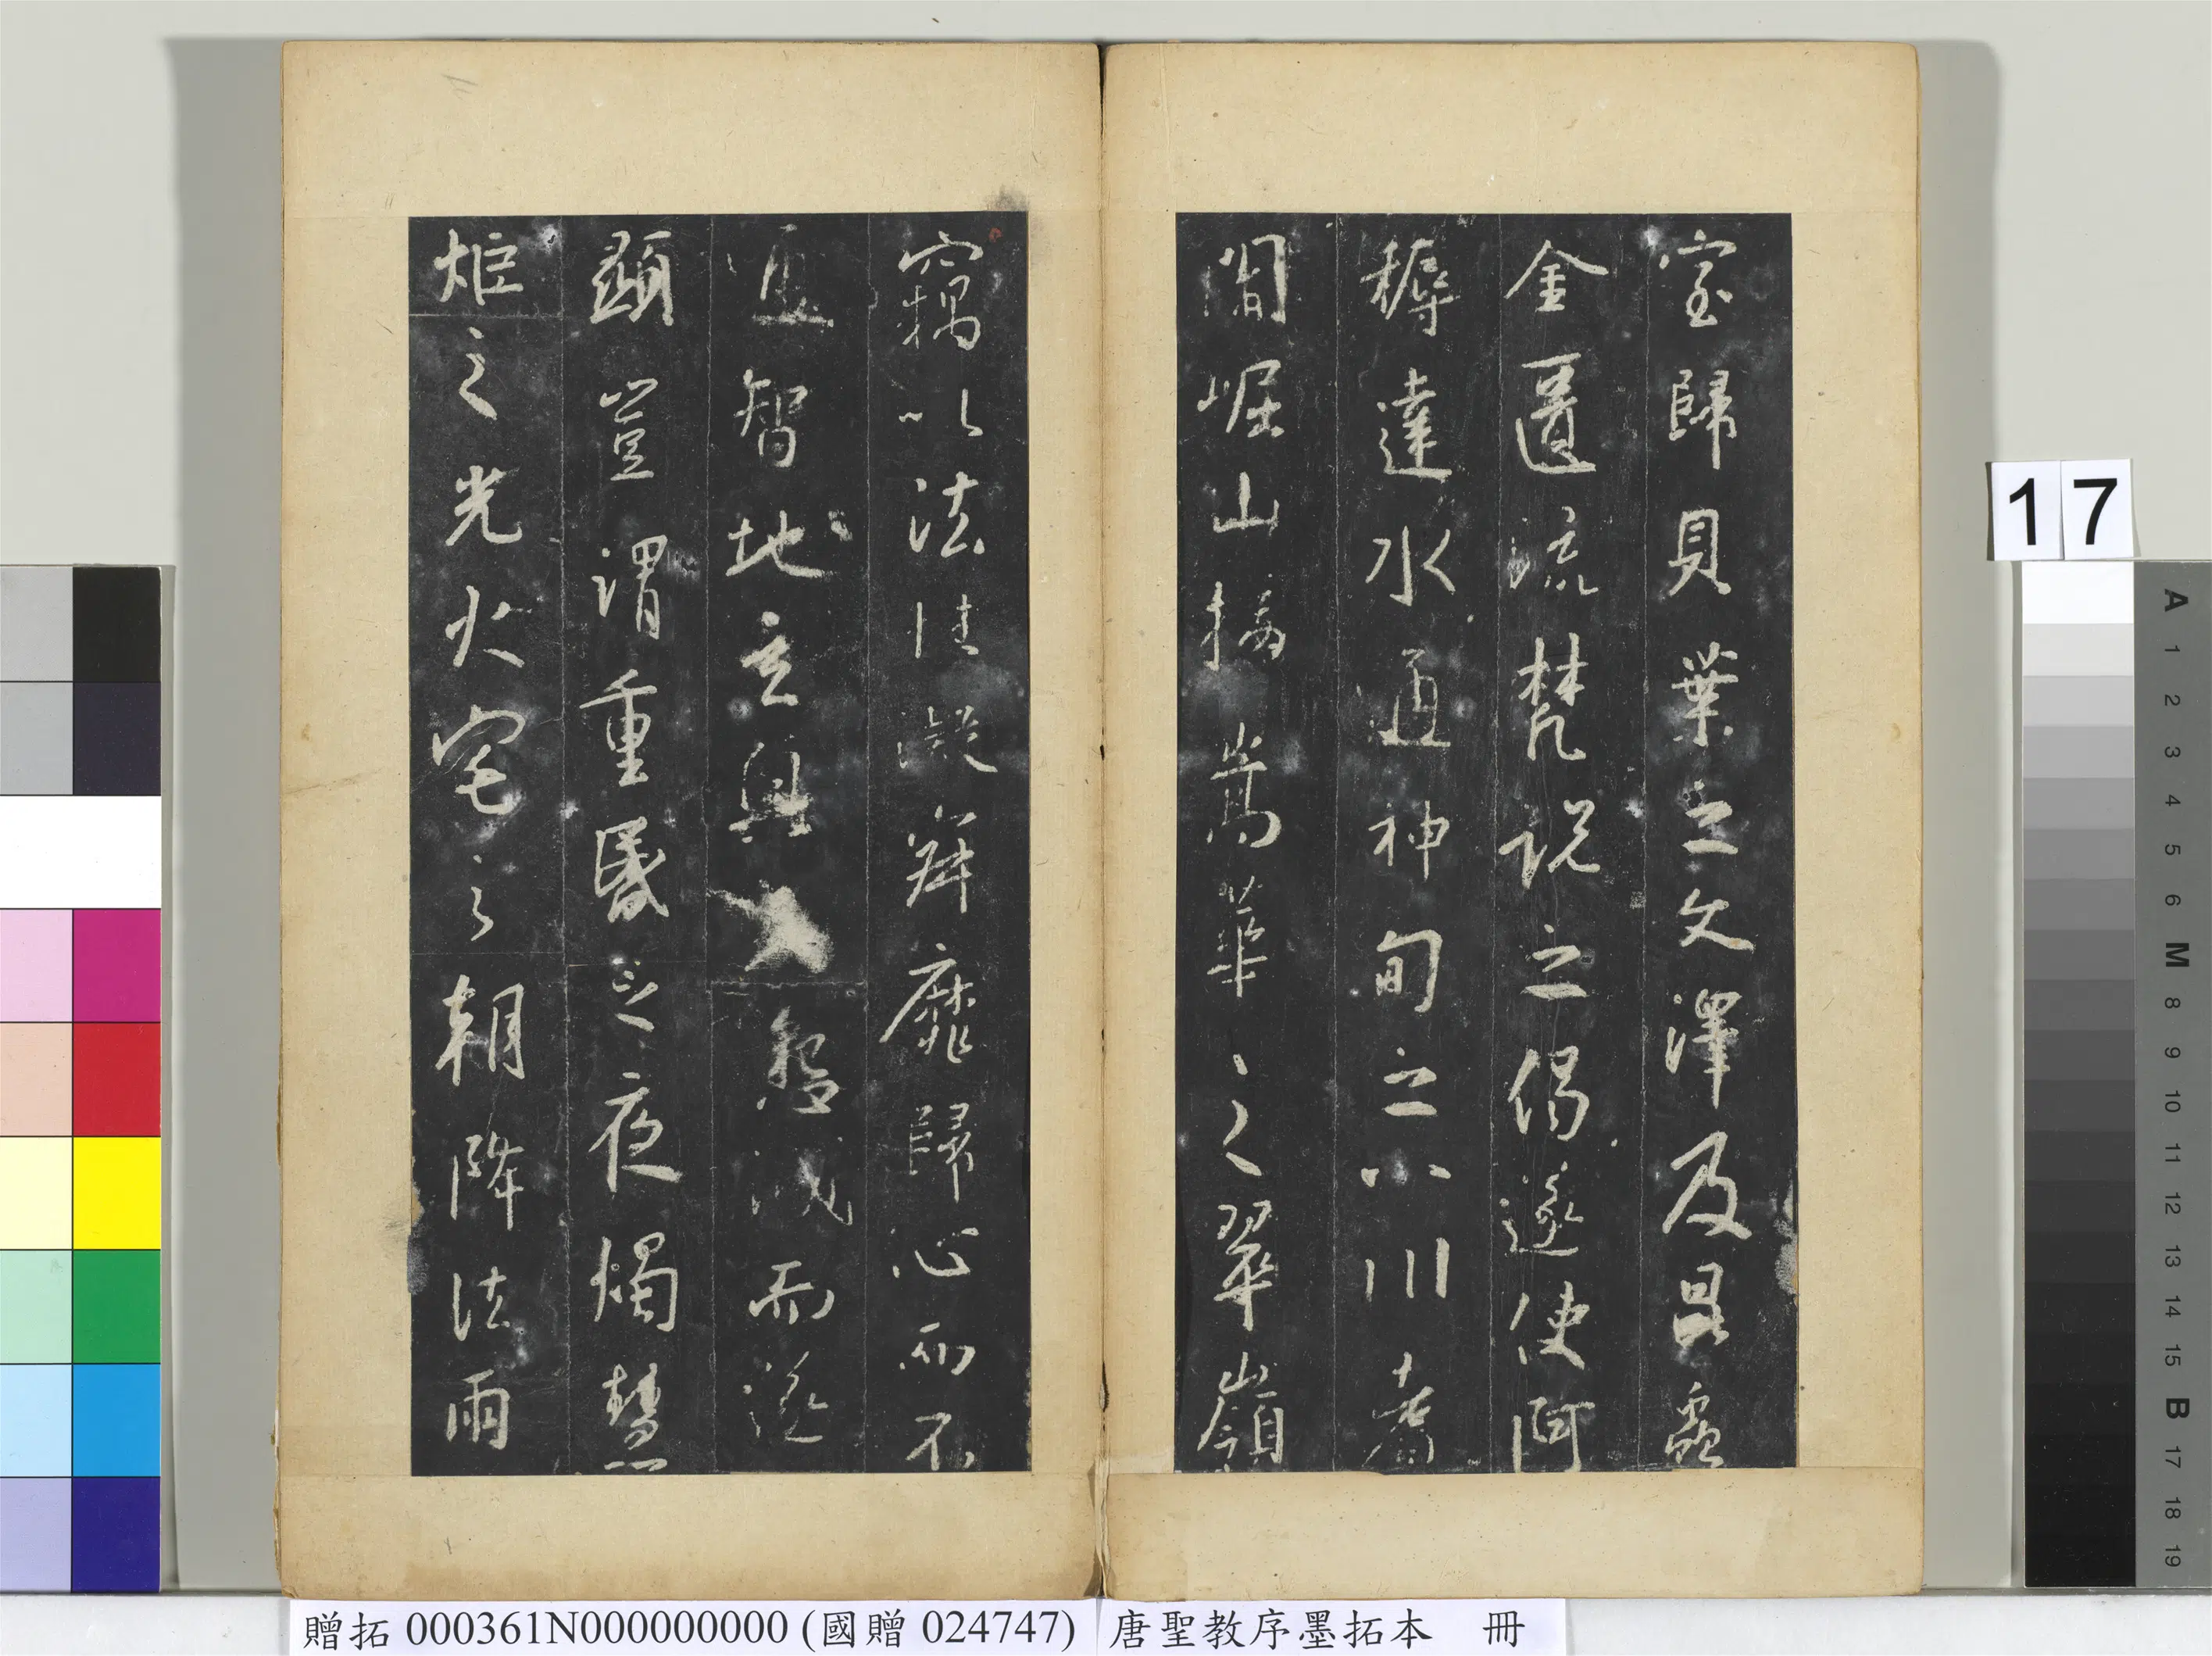 室歸貝葉之文澤及昆蟲
金匱流梵說之偈遂使阿
耨達水通神甸之八川耆
闍崛山接嵩華之翠嶺
竊以法性凝寂靡歸心而不
通智地玄奧懇誠而遂
顯豈謂重昏之夜燭慧
炬之光火宅之朝降法雨
17
A 1 2 3 4 5 6 M 8 9 10 11 12 13 14 15 B 17 18 19
贈拓 000361N000000000 (國贈 024747) 唐聖教序墨拓本 冊